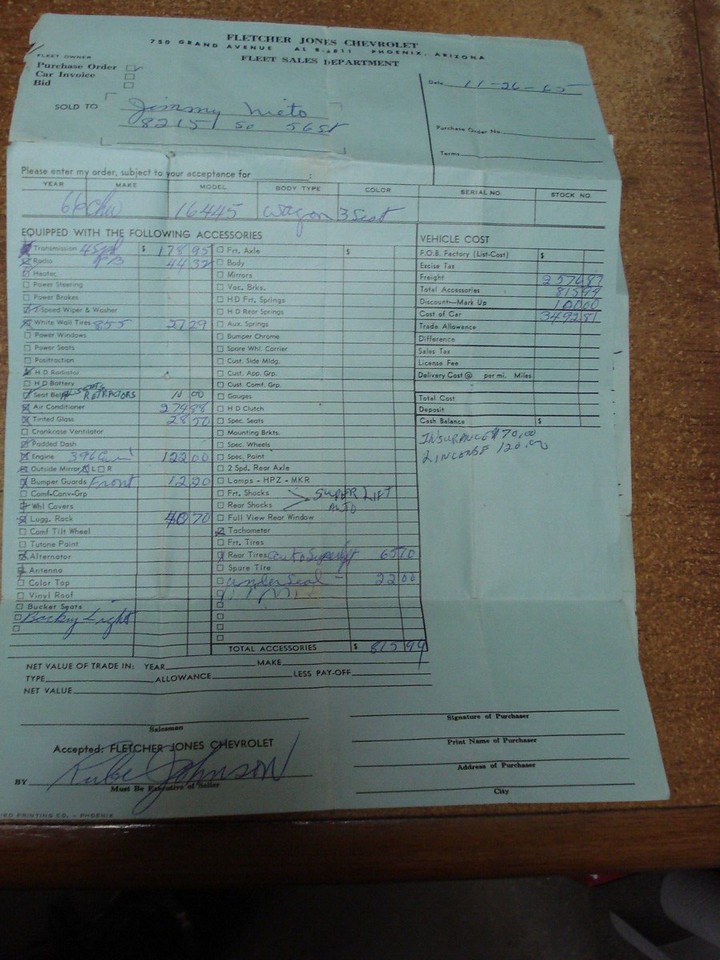 FLETCHER JONES CHEVROLET
750 GRAND AVENUE AL 8-6811 PHOENIX, ARIZONA
FLEET SALES DEPARTMENT
FLEET OWNER
Purchase Order
Car Invoice
Bid
Date 11-26-65
SOLD TO Jimmy Nieto
8215 So 56 St
Purchase Order No.
Terms
Please enter my order, subject to your acceptance for :
YEAR MAKE MODEL BODY TYPE COLOR SERIAL NO. STOCK NO.
66 Chev 16445 Wagon 3 Seat
EQUIPPED WITH THE FOLLOWING ACCESSORIES
Transmission 4 spd $ 178 95
Radio 44 32
Heater
Power Steering
Power Brakes
Speed Wiper & Washer
White Wall Tires 855 27 29
Power Windows
Power Seats
Positraction
H D Radiator
H D Battery
Seat Belts RETRACTORS 10 00
Air Conditioner 274 88
Tinted Glass 28 50
Crankcase Ventilator
Padded Dash
Engine 396 122 00
Outside Mirror L R
Bumper Guards Front 12 20
Comf-Conv-Grp
Whl Covers
Lugg. Rack 40 70
Comf Tilt Wheel
Tutone Paint
Alternator
Antenna
Color Top
Vinyl Roof
Bucket Seats
Backup Light
Frt. Axle $
Body
Mirrors
Vac. Brks.
H D Frt. Springs
H D Rear Springs
Aux. Springs
Bumper Chrome
Spare Whl. Carrier
Cust. Side Mldg.
Cust. App. Grp.
Cust. Comf. Grp.
Gauges
H D Clutch
Spec. Seats
Mounting Brkts.
Spec. Wheels
Spec. Paint
2 Spd. Rear Axle
Lamps - HPZ - MKR
Frt. Shocks SUPER LIFT
Rear Shocks
Full View Rear Window
Tachometer
Frt. Tires
Rear Tires 65 10
Spare Tire
Underseal 22 00
TOTAL ACCESSORIES $ 815 94
VEHICLE COST
F.O.B. Factory (List-Cost) $
Excise Tax
Freight 2576 87
Total Accessories 815 94
Discount—Mark Up 100 00
Cost of Car 3492 81
Trade Allowance
Difference
Sales Tax
License Fee
Delivery Cost @ per mi. Miles
Total Cost
Deposit
Cash Balance $
INSURANCE $70.00
LINCENSE 120.00
NET VALUE OF TRADE IN: YEAR MAKE
TYPE ALLOWANCE LESS PAY-OFF
NET VALUE
Salesman
Accepted: FLETCHER JONES CHEVROLET
BY Rube Johnson
Must Be Executive of Seller
Signature of Purchaser
Print Name of Purchaser
Address of Purchaser
City
PRINTING CO. — PHOENIX